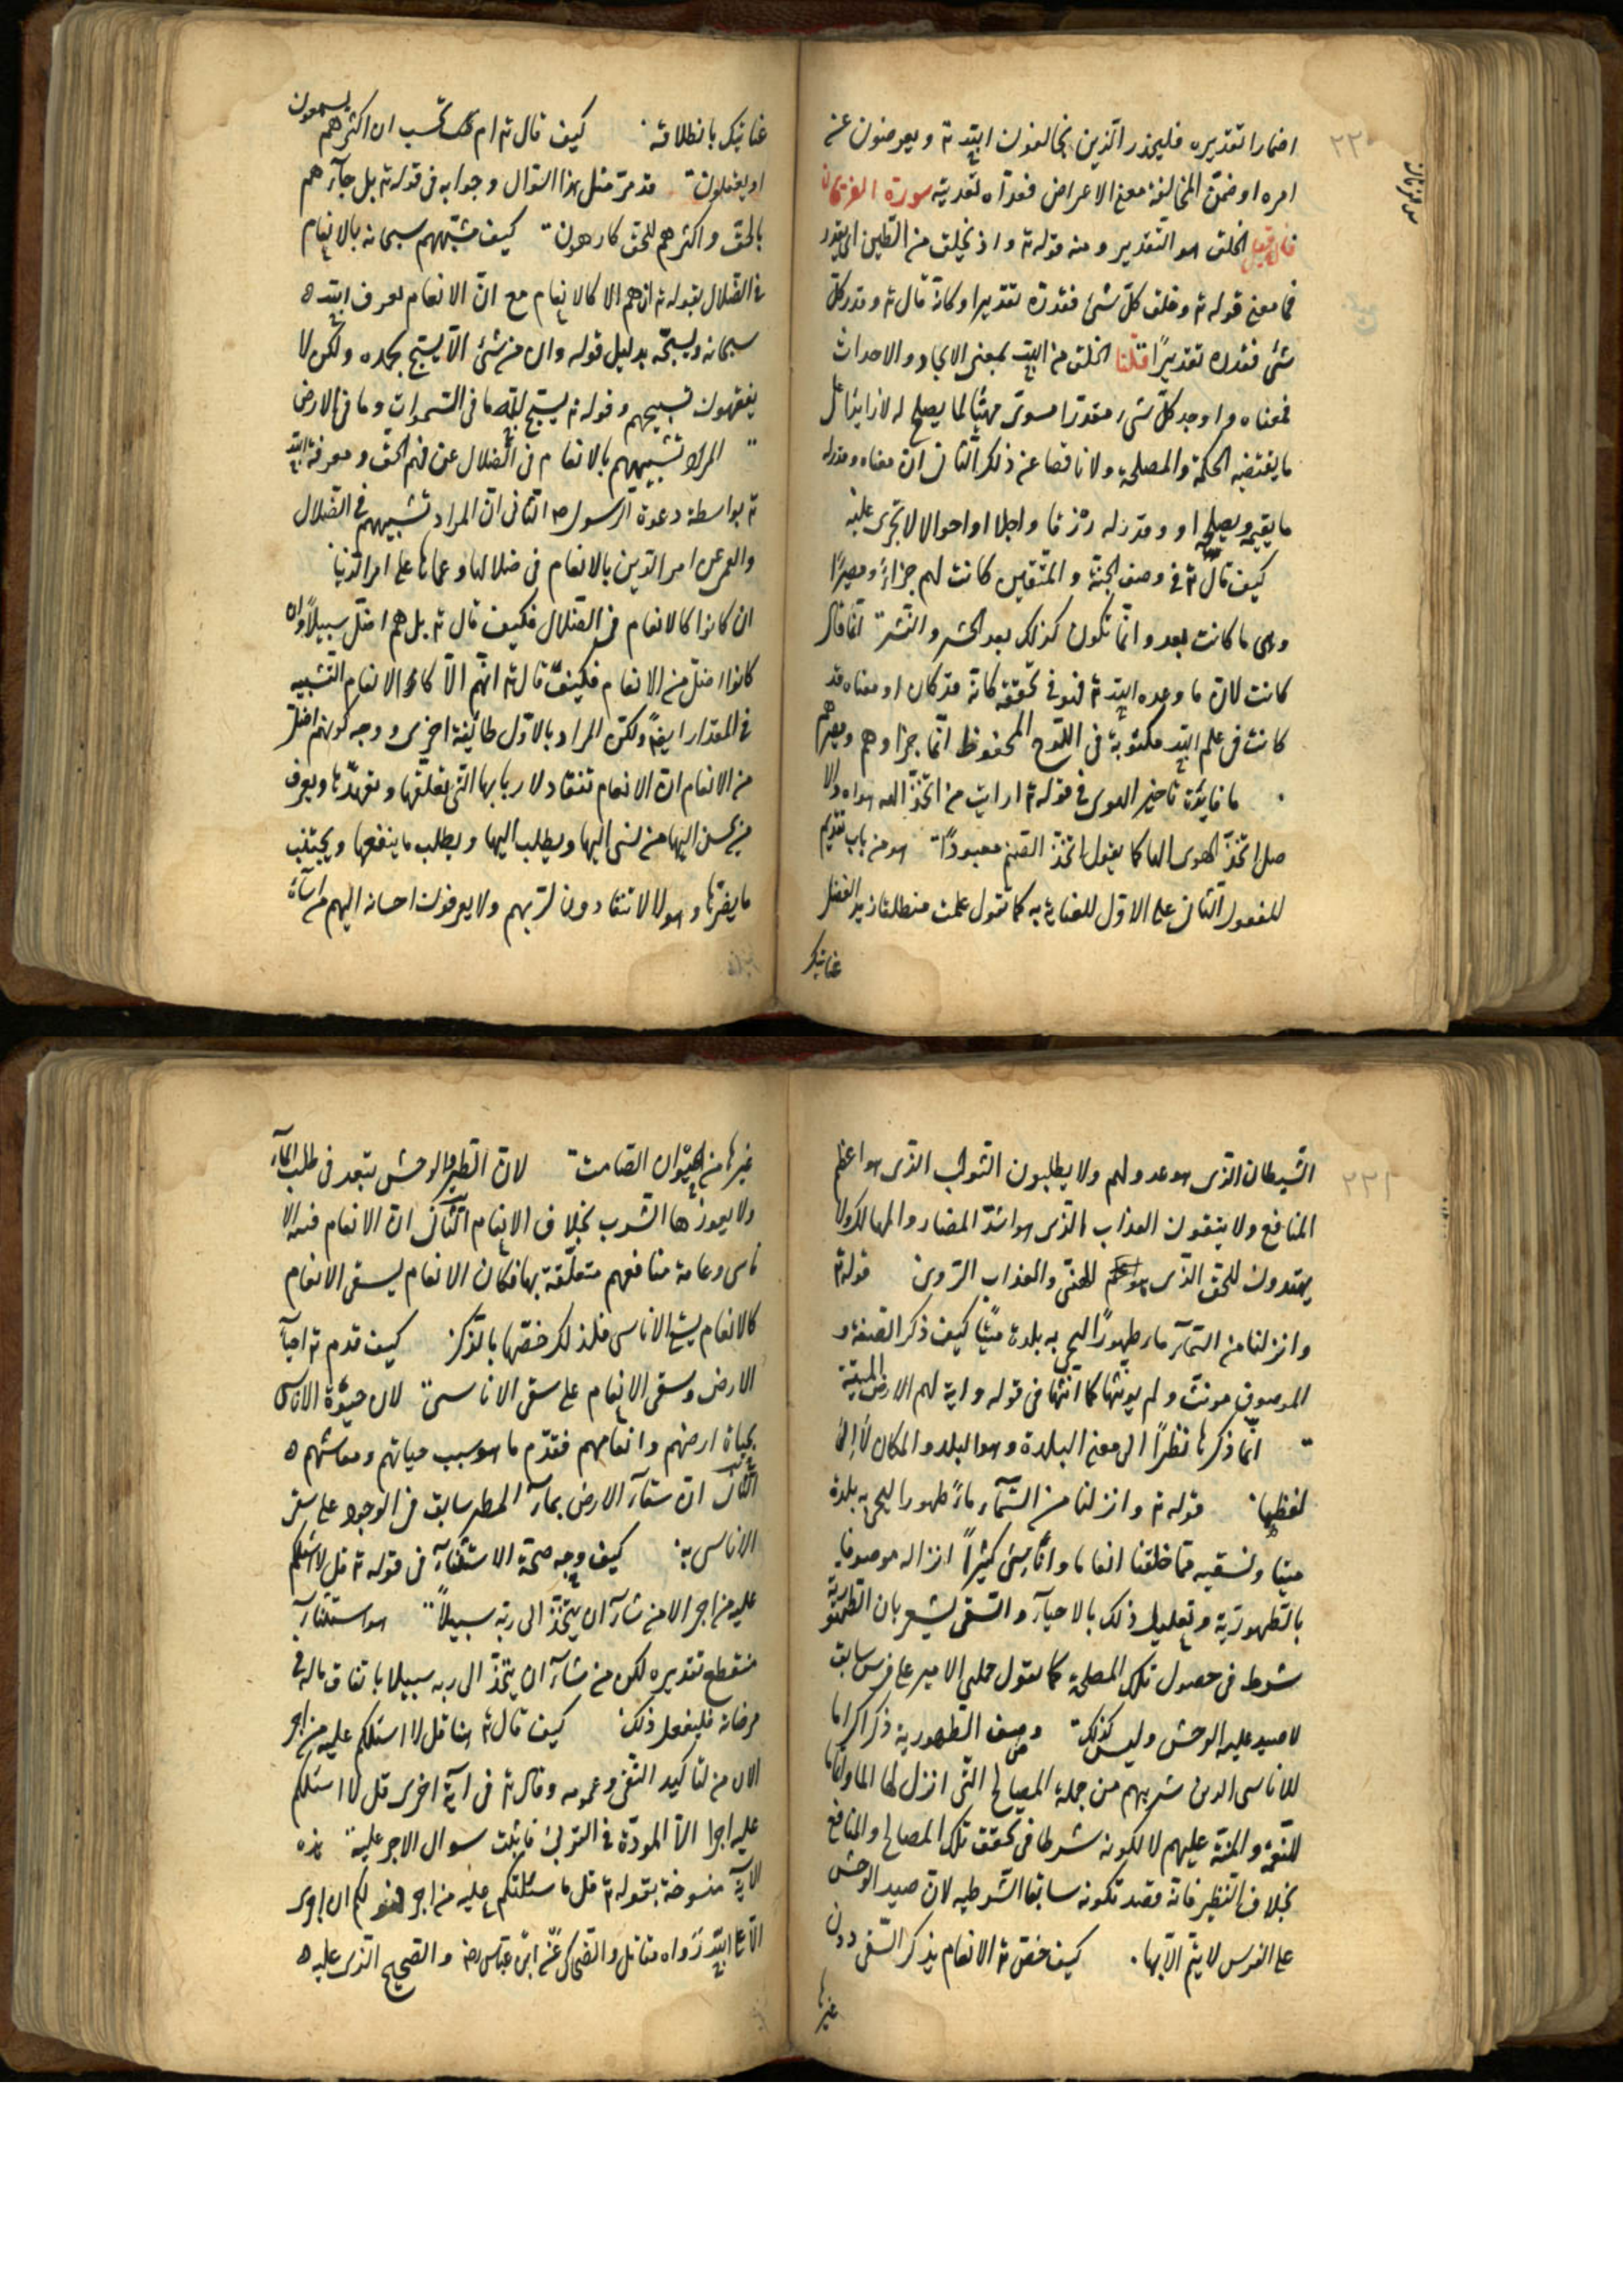 ٢٢٠
سورة الفرقان
اضمارا تقديره فليحذر الذين يخالفون الله تع ويعرضون عن
امره او ضمّن المخالفة معنى الاعراض فعدّاه تعديته سورة الفرقان
فان قيل الخلق هو التقدير ومنه قوله تع واذ تخلق من الطين اى تقدر
فما معنى قوله تع وخلق كلّ شئ فقدّره تقديرا وكانّه قال تع وقدر كلّ
شئ فقدره تقديرًا قلنا الخلق من الله بمعنى الايجاد والاحداث
فمعناه واوجد كلّ شئ مقدّرا مسوّى مهيّئا لما يصلح له لا زايدا على
ما يقتضيه الحكمة والمصلحة ولا ناقصا عن ذلك الثانى انّ معناه وقدر له
ما يقيمه ويصلحه او وقدر له رزقا واجلا او احوالا تجرى عليه
كيف قال تع فى وصف الجنّة والمتّقين كانت لهم جزاءً ومصيرًا
وهى ما كانت بعد وانّما تكون كذلك بعد الحشر والنّشر انّما قال
كانت لانّ ما وعده الله تع فهو فى تحققه كانه قد كان او معناه قد
كانت فى علم الله مكتوبة فى اللّوح المحفوظ انّها جزاوهم ومصيرهم
ما فايدة تاخير الهوى فى قوله تع ارايت من اتّخذ الهه هواه والا
صل اتّخذ الهوى الها كما يقول اتّخذ الصّنم معبودًا هو من باب تقديم
للمفعول الثانى على الاوّل للعناية به كما تقول علمت منطلقا زيدا لفضل
عنايتك
عنايتك بانطلاقه كيف قال تع ام تحسب ان اكثرهم يسمعون
او يعقلون قد مرّ مثل هذا السّوال وجوابه فى قوله تع بل جآءهم
بالحقّ واكثرهم للحق كارهون كيف شبّههم سبحانه بالانعام
فى الضّلال بقوله تع ان هم الا كالانعام مع انّ الانعام تعرف الله
سبحانه وتسبّحه بدليل قوله وان من شئ الّا يسبّح بحمده ولكن لا
يفقهون تسبيحهم وقوله تع يسبّح لله ما فى السّموات وما فى الارض
المراد تشبيههم بالانعام فى الضّلال عن فهم الحقّ ومعرفة الله
تع بواسطة دعوة الرّسول ص الثانى انّ المراد تشبيههم فى الضّلال
والعمى عن امر الدّين بالانعام فى ضلالها وعماها على امر الدّين
ان كانوا كالانعام فى الضّلال فكيف قال تع بل هم اضلّ سبيلاً وان
كانوا اضلّ من الانعام فكيف قال تع انّهم الّا كالانعام التّشبيه
فى المقدار ايضًا ولكن المراد بالاوّل طائفة اخرى ووجه كونهم اضلّ
من الانعام انّ الانعام تنقاد لاربابها الّتى تعلفها وتعهّدها ويعرف
من يحسن اليها من يسئ اليها ويطلب اليها ويطلب ما ينفعها ويجتنب
ما يضرّها وهولا لا تنقادون لربّهم ولا يعرفون احسانه اليهم من اسآءة
٢٢١
الشّيطان الذى هو عدو لهم ولا يطلبون الثّواب الذى هو اعظم
المنافع ولا يتقون العذاب الذى هو اشدّ المضار والمهالك ولا
يهتدون للحقّ الذى هو المهنّى والعذاب الرّوىّ قوله تع
وانزلنا من السّمآء ماء طهورًا ليحى به بلدة ميّتًا كيف ذكر الصّفة و
الموصوف مونّث ولم يونّثها كما انّثها فى قوله واية لهم الارض الميتة
انّما ذكرها نظرًا الى معنى البلدة وهو البلد والمكان لا الى
لفظها قوله تع وانزلنا من السّمآء ماءً طهورا ليحى به بلدة
ميتا ونسقيه ممّا خلقنا انعاما واناسىّ كثيرًا انزاله موصوفا
بالطّهوريّة وتعليل ذلك بالاحيآء والسّقى يشعر بان الطّهوريّة
شرط فى حصول تلك المصلحة كما تقول حملنى الامير على فرس سابق
لاصيد عليه الوحش وليس كذلك وصف الطّهورية ذكر اكراما
للاناسى الذين شربهم من جملة المصالح الّتى انزل لها الما واتماما
للنّعمة والمنّة عليهم لا لكونه شرطا فى تحقق تلك المصالح والمنافع
بخلاف النّظير فانّه قصد تكونه سابقا الشّرطية لانّ صيد الوحش
على الفرس لا يتمّ الّا بها كيف خصّ تع الانعام بذكر السّقى دون
غيرها
غيرها من الحيوان الصّامت لانّ الطير والوحش تبعد فى طلب المآء
ولا يعوزها الشّرب بخلاف الانعام الثّانى انّ الانعام قنية الا
ناسى وعامة منافعهم متعلّقة بها فكان الانعام بسقى الانعام
كالانعام بسقى الاناسى فلذلك خصّها بالذّكر كيف قدم تع احيآء
الارض وسقى الانعام على سقى الاناسىّ لانّ حيوة الاناسى
بحياة ارضهم وانعامهم فقدّم ما هو سبب حياتهم ومعاشهم
الثّانى انّ سقآء الارض بمآء المطر سابق فى الوجود على سقى
الاناسى به كيف وجه صحّة الاستثنآء فى قوله تع قل لا اسئلكم
عليه من اجر الا من شآء ان يتّخذ الى ربّه سبيلاً هو استثنآء
منقطع تقديره لكن من شآء ان يتّخذ الى ربه سبيلا بانفاق ماله فى
مرضاته فليفعل ذلك كيف قال تع هنا قل لا اسئلكم عليه من اجر
الا من لتاكيد النّفى وعمومه وقال تع فى آية اخرى قل لا اسئلكم
عليه اجرا الّا المودّة فى القربى فاثبت سوال الاجر عليه هذه
الآية منسوخة بقوله تع قل ما سئلتكم عليه من اجر فهو لكم ان اجرى
الّا على الله رواه مقاتل والضّحاك عن ابن عبّاس رض والصّحيح الذى عليه